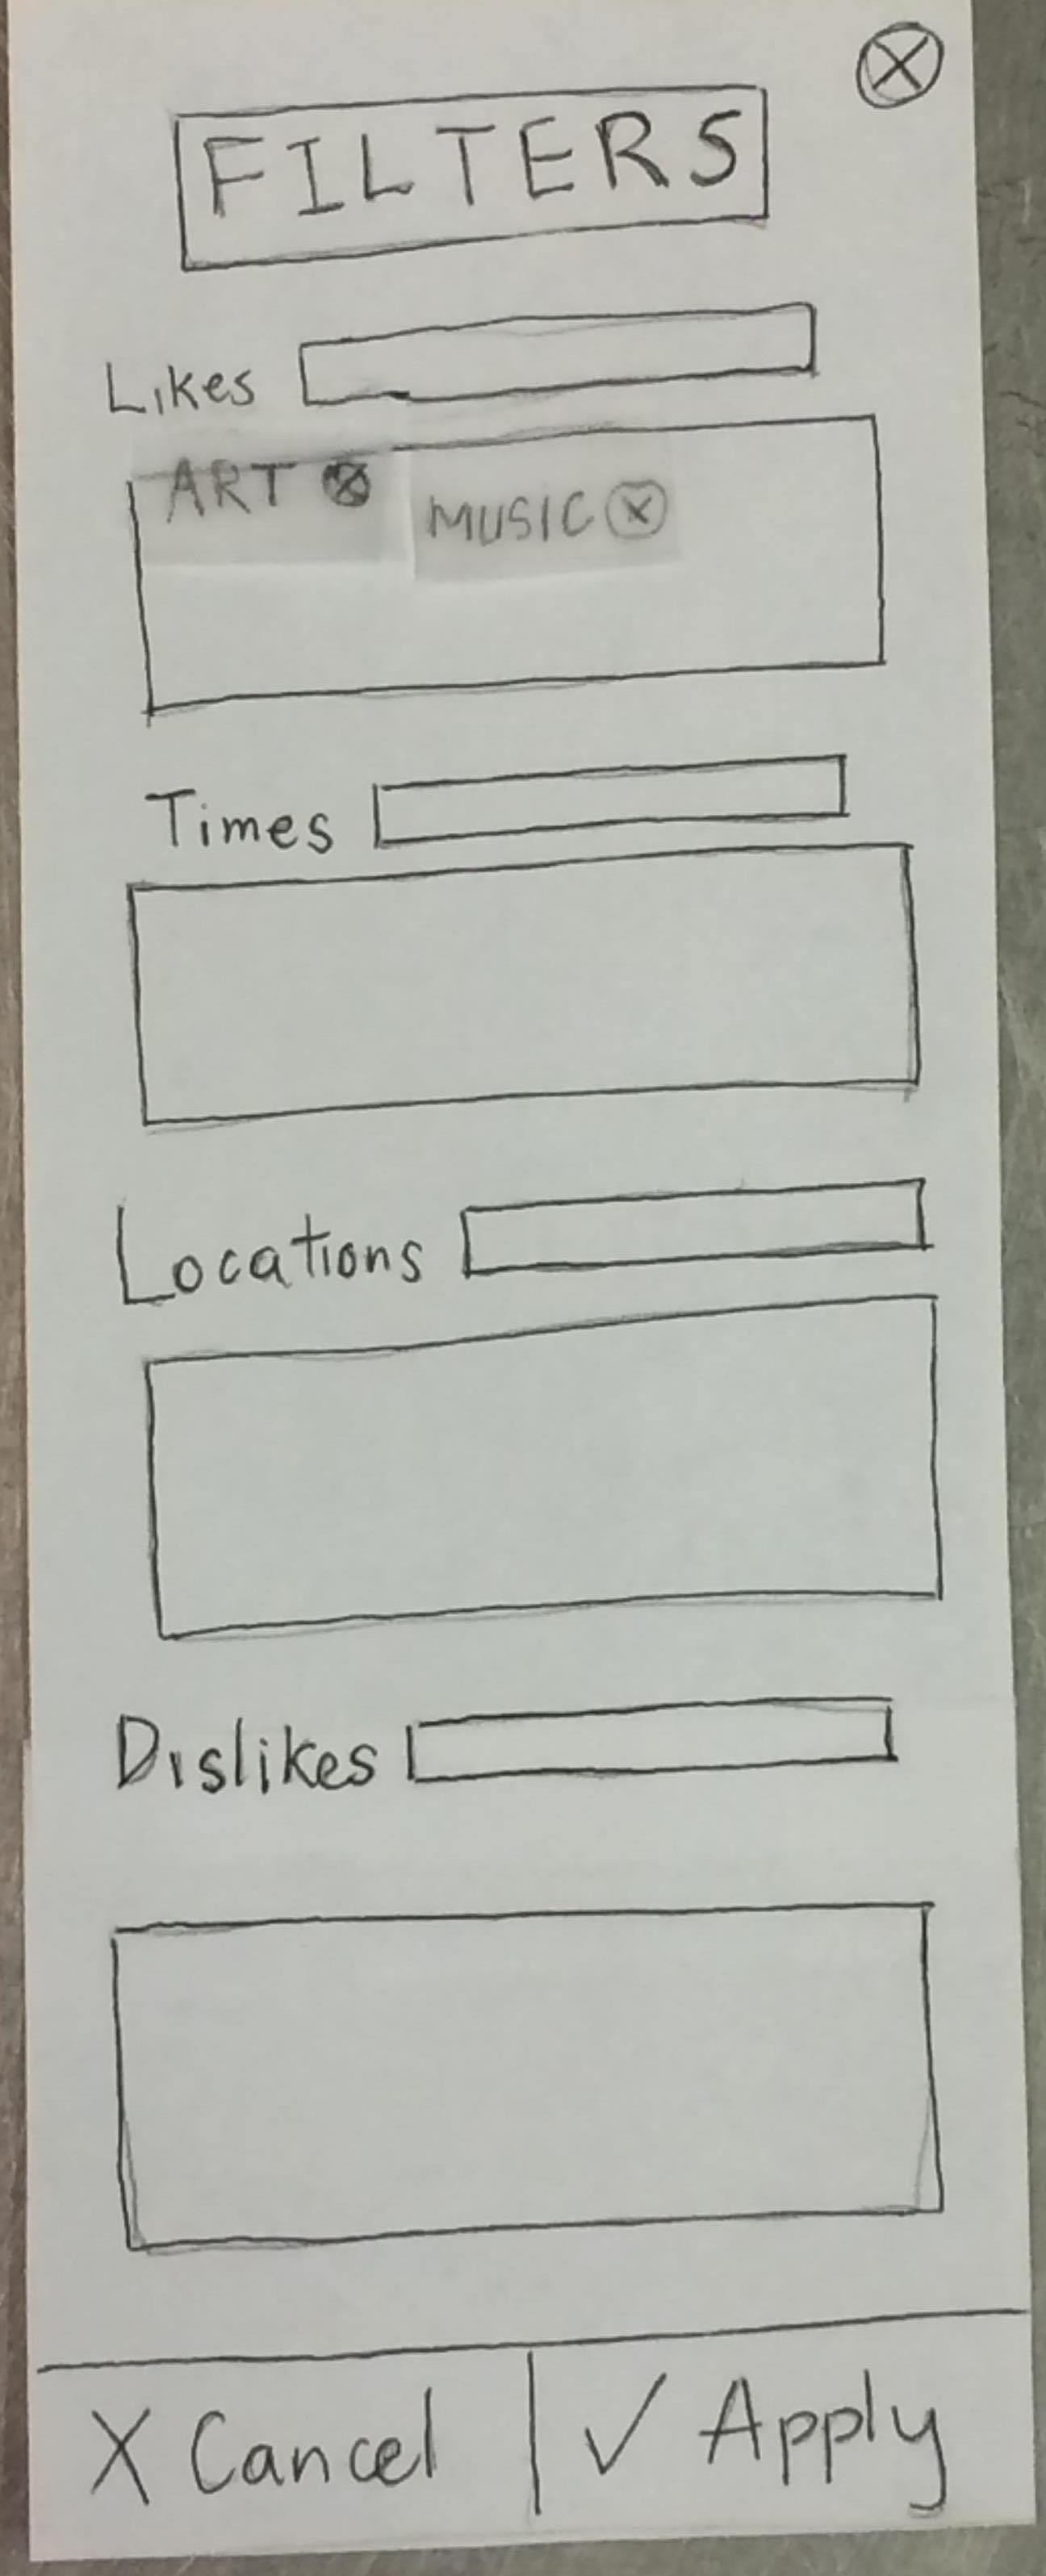 FILTERS
Likes
ART
MUSIC
Times
Locations
Dislikes
X Cancel ✓ Apply